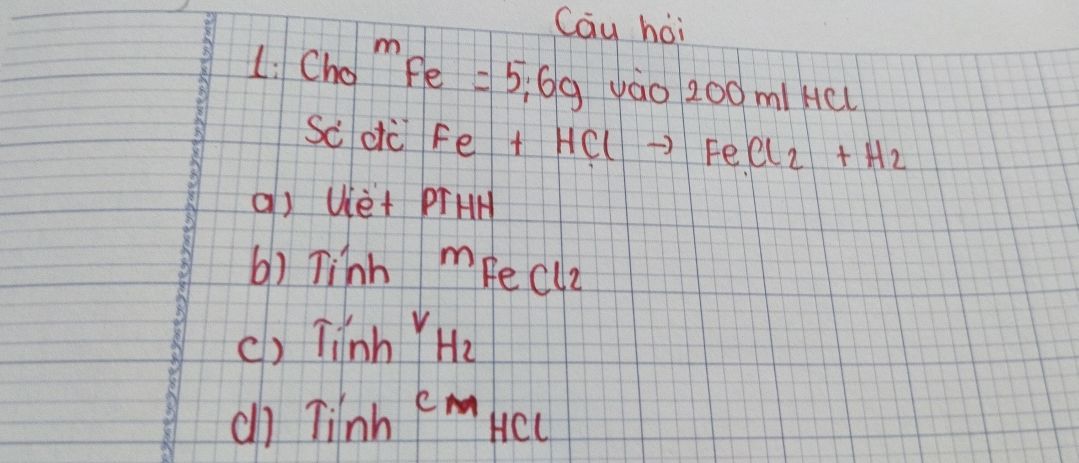 Câu hỏi
1. Cho mFe = 5,6g vào 200 ml HCl
Sơ đồ Fe + HCl → FeCl2 + H2
a) Viết PTHH
b) Tính mFeCl2
c) Tính VH2
d) Tính CM HCl